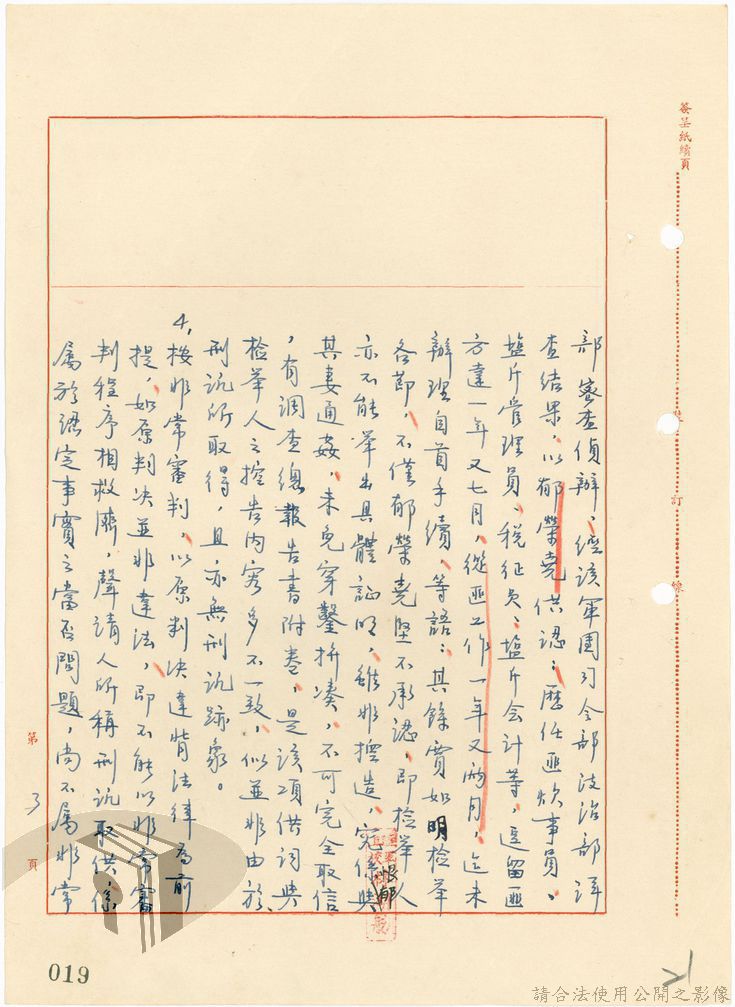 簽呈紙續頁
部審查偵辦、經該軍團司令部政治部詳
查結果、以郁榮堯供認：歷任匪炊事員、
塩斤管理員、稅征員、塩斤會計等，逗留匪
方達一年又七月，從匪工作一年又兩月，迄未
辦理自首手續，等語：其餘實如明檢舉
各節，不僅郁榮堯堅不承認，即檢舉人
亦不能舉出具體証明，雖非捏造，究係與
恨郁
其妻通姦，未免穿鑿拼湊，不可完全取信
，有調查總報告書附卷，是該項供詞與
檢舉人之控告內容多不一致，似並非由於
刑訊所取得，且亦無刑訊跡象。
4、按非常審判，以原判決違背法律為前
提，如原判決並非違法，即不能以非常審
判程序相救濟，聲請人所稱刑訊取供，係
屬於認定事實之當否問題，尚不屬非常
裝訂線
第3頁
019
請合法使用公開之影像